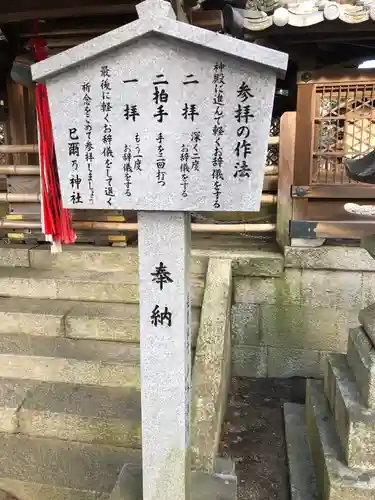 参拝の作法
神殿に進んで軽くお辞儀をする
二拝
深く二度
お辞儀をする
二拍手
手を二回打つ
一拝
もう一度
お辞儀をする
最後に軽くお辞儀をして
祈念をこめて参拝しましょう
巳爾乃神社
奉納